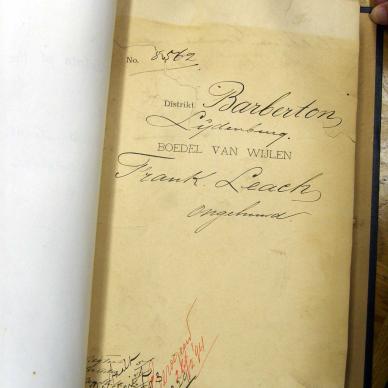 No. 8562
Distrikt Barberton
Lijdenburg.
BOEDEL VAN WIJLEN
Frank Leach
ongehuwd.